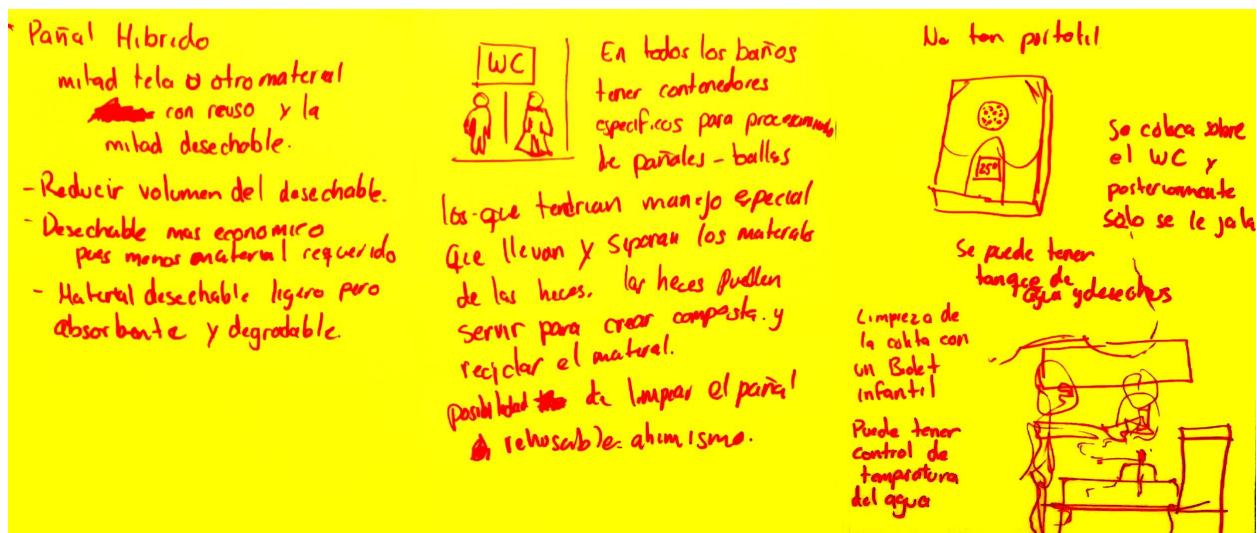 Pañal Hibrido
mitad tela o otro material
con reuso y la
mitad desechable.
- Reducir volumen del desechable.
- Desechable mas economico
pues menos material requerido
- Material desechable ligero pero
absorbente y degradable.
WC
En todos los baños
tener contenedores
especificos para procesamiento
de pañales - balles
los que tendrian manejo especial
que llevan y separan los materiales
de las heces. las heces pueden
servir para crear composta. y
reciclar el material.
posibilidad de limpiar el pañal
rehusable ahi mismo.
No tan portatil
25°
Se coloca sobre
el WC y
posteriormente
solo se le jala
Se puede tener
tanque de
agua y desechos
Limpieza de
la colita con
un Bidet
infantil
Puede tener
control de
temperatura
del agua